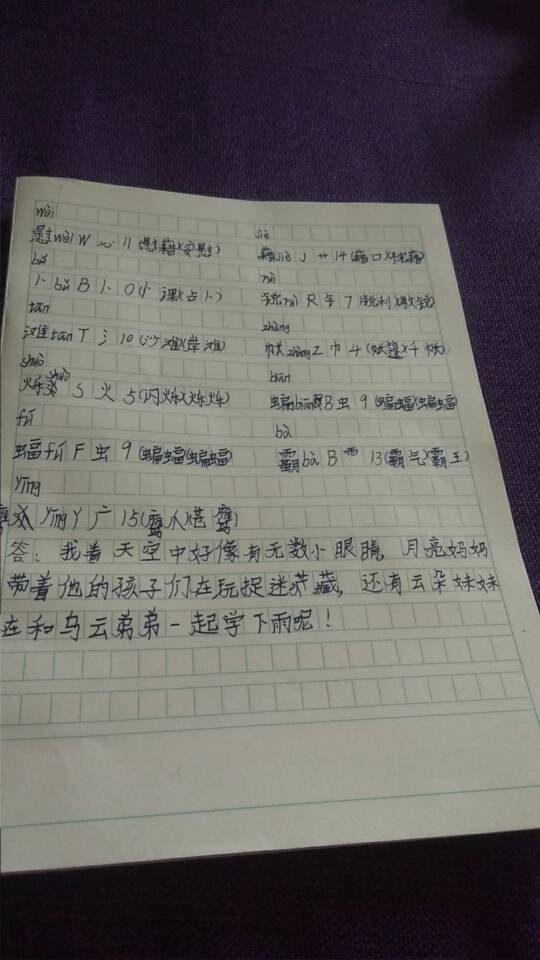 wèi jiè
慰 wèi W 心 11 (慰藉)(安慰) 藉 jiè J 艹 14 (藉口)(枕藉)
bǔ ruì
卜 bǔ B 卜 0 (占卜) 锐 ruì R 钅 7 (锐利)(敏锐)
tān zhàng
滩 tān T 氵 10 (沙滩)(岸滩) 帐 zhàng Z 巾 4 (帐篷)(千帐)
shuò biān
烁 shuò S 火 5 (闪烁)(烁烁) 蝙 biān B 虫 9 (蝙蝠)(蝙蝠
fú bà
蝠 fú F 虫 9 (蝙蝠)(蝙蝠) 霸 bà B 雨 13 (霸气)(霸王)
yīng
鹰 yīng Y 广 15 (鹰爪)(苍鹰)
答：我看天空中好像有无数小眼睛，月亮妈妈
带着他的孩子们在玩捉迷藏，还有云朵妹妹
在和乌云弟弟一起学下雨呢！